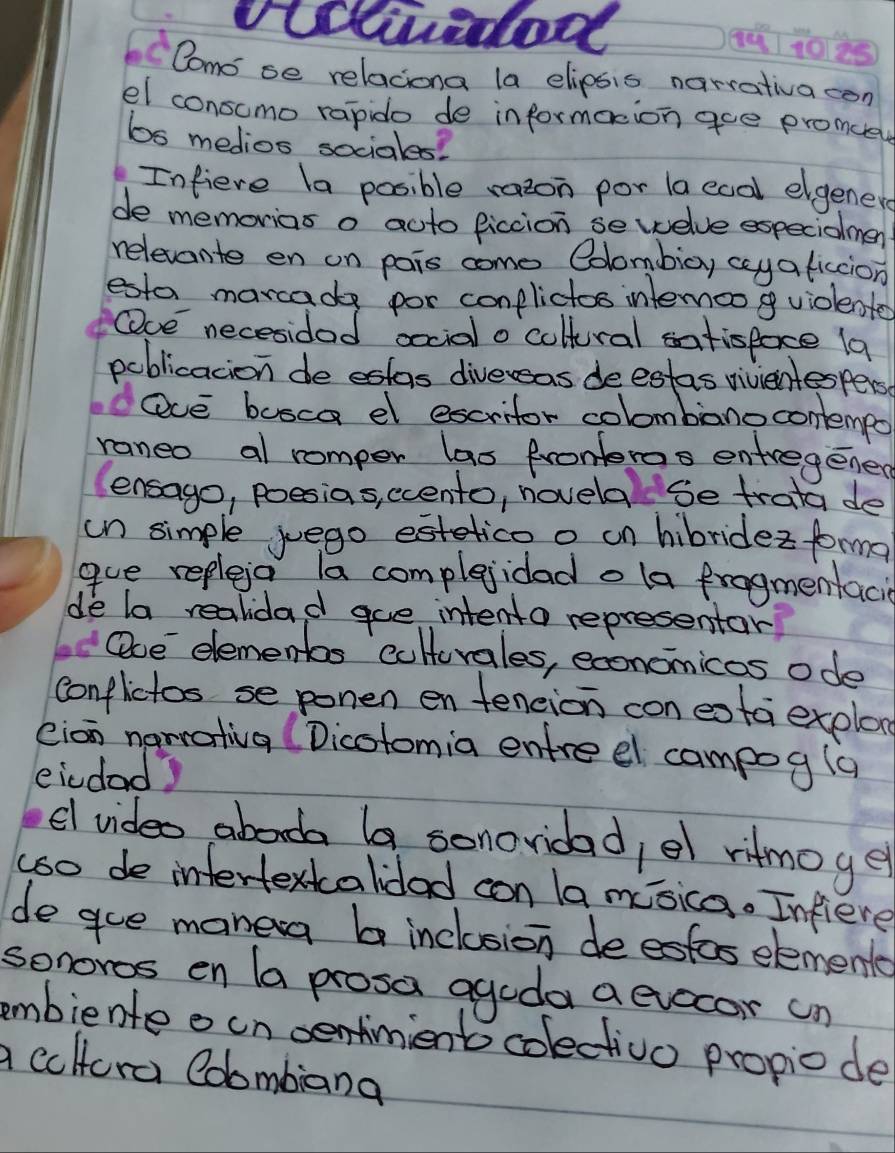 Actividad
14 10 25
¿Comó se relaciona la elipsis narrativa con
el consumo rápido de información que promueve
los medios sociales?
Infiere la posible razón por la cual el genero
de memorias o auto ficcion se vuelve especialmen
relevante en un país como Colombia, cuya ficcion
esta marcada por conflictos internos y violento
¿Qué necesidad social o cultural satisface la
publicación de estas diversas de estas vivientes perso
¿Qué busca el escritor colombiano contempo
raneo al romper las fronteras entre géner
(ensayo, poesias, cuento, novela) ¿Se trata de
un simple juego estetico o un hibridez forma
que refleja la complejidad o la fragmentació
de la realidad que intenta representar?
¿Qué elementos culturales, económicos o de
conflictos se ponen en tención con está explora
ción narrativa (Dicotomia entre el campo y la
ciudad)
el video aborda la sonoridad, el ritmo y el
uso de intertextualidad con la música. Infiere
de que manera la inclusión de estos elemento
sonoros en la prosa ayuda a evocar un
ambiente o un sentimiento colectivo propio de
a cultura Colombiana